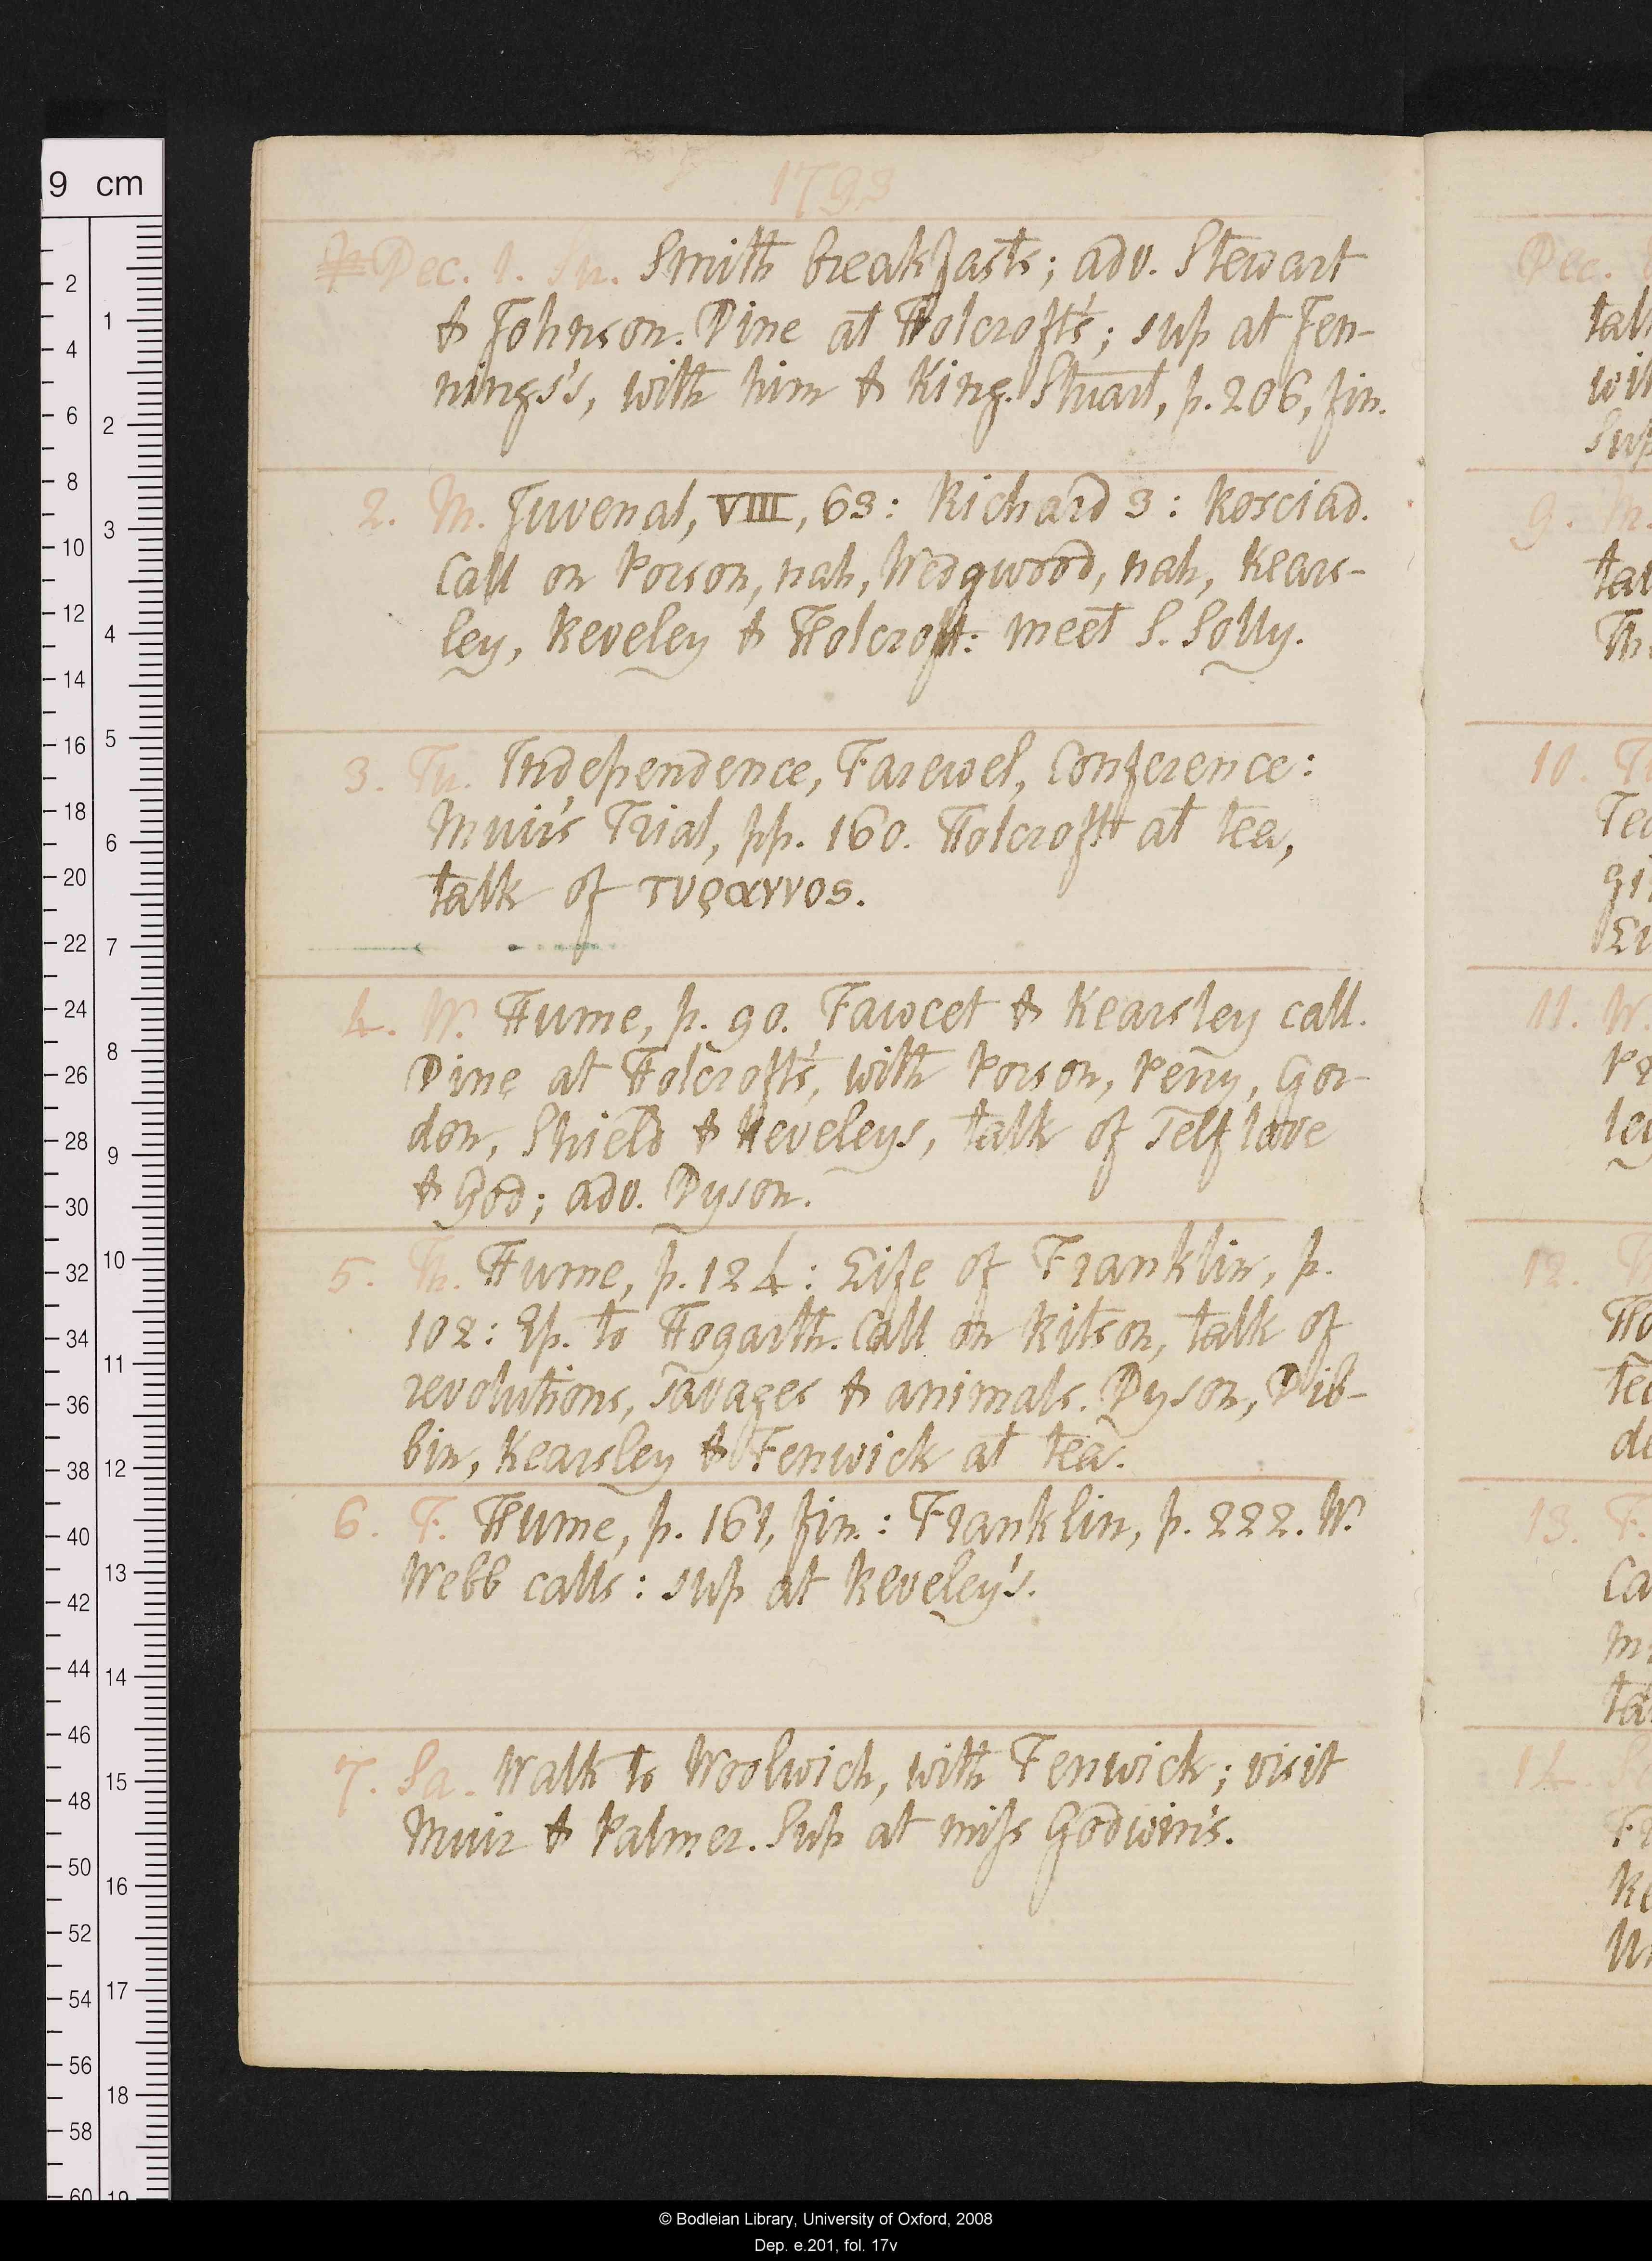 1793
Dec. 1. Su. Smith breakfasts; adv. Stewart
& Johnson. Dine at Holcroft's; sup at Jen-
nings's, with him & King. Stuart, p. 206, fin.
2. M. Juvenal, VIII, 63: Richard 3: Rosciad.
Call on Porson, nah, Wedgwood, nah, Kears-
ley, Reveley & Holcroft: meet S. Solly.
3. Tu. Independence, Farewel, Conference:
Muir's Trial, pp. 160. Holcroft at tea,
talk of τυραννος.
4. W. Hume, p. 90. Fawcet & Kearsley call.
Dine at Holcroft's, with Porson, Perry, Gor-
don, Shield & Reveleys, talk of self love
& God; adv. Dyson.
5. Th. Hume, p. 124: Life of Franklin, p.
102: Ep. to Hogarth. Call on Ritson, talk of
revolutions, savages & animals. Dyson, Dib-
bin, Kearsley & Fenwick at tea.
6. F. Hume, p. 161, fin.: Franklin, p. 222. W.
Webb calls: sup at Reveley's.
7. Sa. Walk to Woolwich, with Fenwick; visit
Muir & Palmer. Sup at miss Godwin's.
Dec.
9. M.
10. Tu
11. W.
12. Th
13. F.
14. Sa
9 cm
2 4 6 8 10 12 14 16 18 20 22 24 26 28 30 32 34 36 38 40 42 44 46 48 50 52 54 56 58 60
1 2 3 4 5 6 7 8 9 10 11 12 13 14 15 16 17 18 19
© Bodleian Library, University of Oxford, 2008
Dep. e.201, fol. 17v